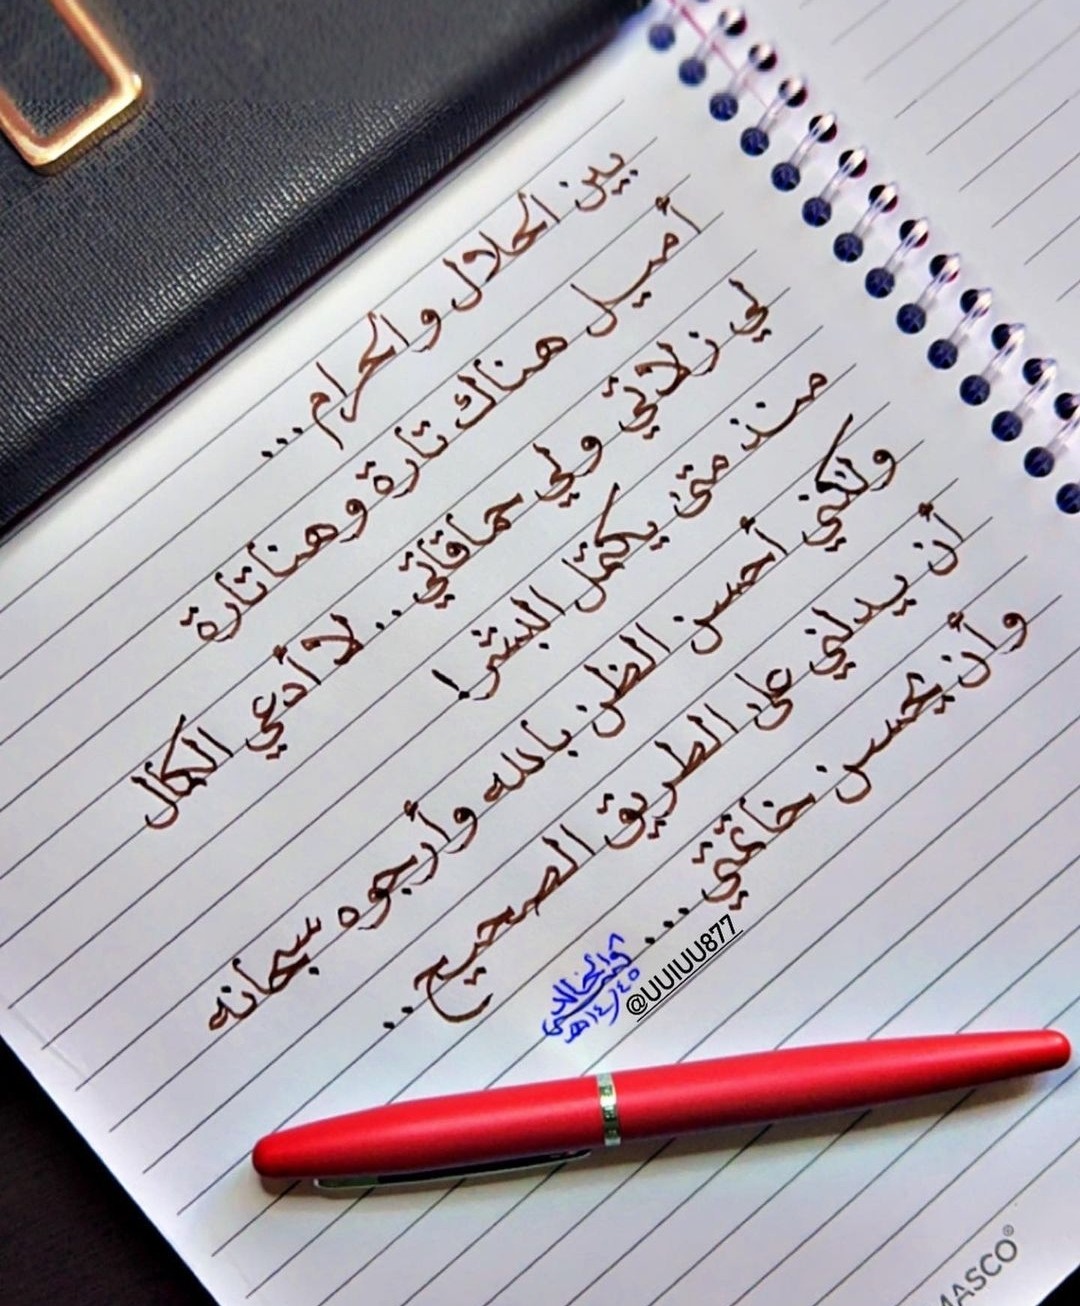 بين الحلال والحرام...
أميل هناك تارة وهنا تارة
لي زلاتي ولي حماقاتي.. لا أدعي الكمال
منذ متى يكتمل البشر!
ولكني أحسن الظن بالله وأرجوه سبحانه
أن يدلني على الطريق الصحيح..
وأن يحسن خاتمتي...
الخالدي
١٤٤٥هـ
@UUIUU877
MASCO®